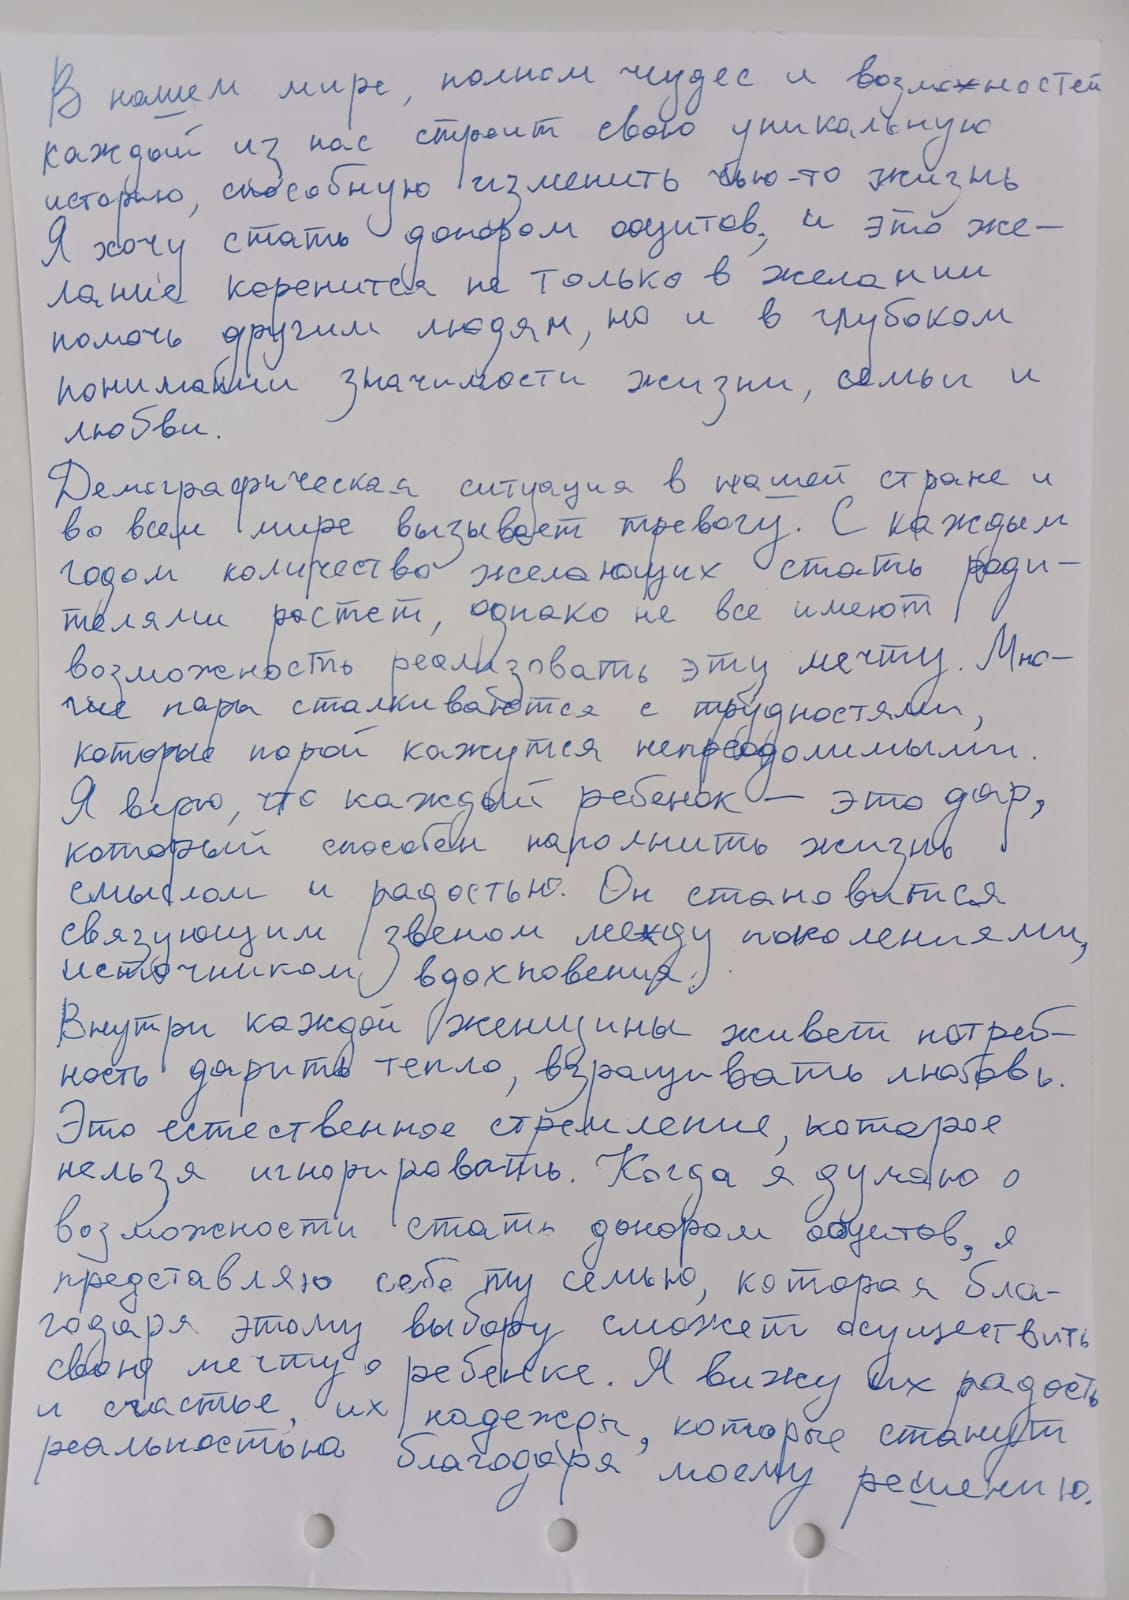 В нашем мире, полном чудес и возможностей
каждый из нас строит свою уникальную
историю, способную изменить чью-то жизнь
Я хочу стать донором ооцитов, и это же-
лание коренится не только в желании
помочь другим людям, но и в глубоком
понимании значимости жизни, семьи и
любви.
Демографическая ситуация в нашей стране и
во всем мире вызывает тревогу. С каждым
годом количество желающих стать роди-
телями растет, однако не все имеют
возможность реализовать эту мечту. Мно-
гие пары сталкиваются с трудностями,
которые порой кажутся непреодолимыми.
Я верю, что каждый ребенок — это дар,
который способен наполнить жизнь
смыслом и радостью. Он становится
связующим звеном между поколениями,
источником вдохновения.
Внутри каждой женщины живет потреб-
ность дарить тепло, взращивать любовь.
Это естественное стремление, которое
нельзя игнорировать. Когда я думаю о
возможности стать донором ооцитов, я
представляю себе ту семью, которая бла-
годаря этому выбору сможет осуществить
свою мечту о ребенке. Я вижу их радость
и счастье, их надежды, которые станут
реальностью благодаря моему решению.